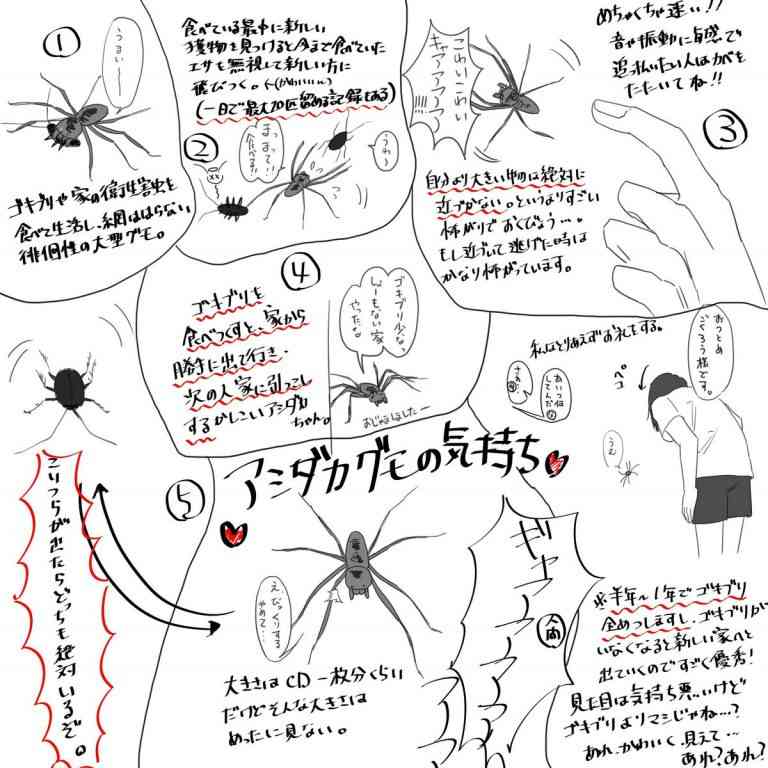 アシダカグモの気持ち
①
うるい〜
ゴキブリや家の衛生害虫を
食べて生活し、網ははらない
徘徊性の大型グモ。
食べている最中に新しい
獲物を見つけると今まで食べていた
エサを無視して新しい方に
飛びつく。←(かわいい)
(一日で最大20匹留める記録もある)
②
まってって!!
食べる!!
うわ〜
こわいこわい
キャアアアアア
!!!
めちゃくちゃ速い!!
音や振動に敏感で
追い払いたい人はカベを
たたいてね!!
③
自分より大きいものは絶対に
近づかない。というよりすごい
怖がりでおくびょう…。
もし近づいて逃げた時は
かなり怖がっています。
④
ゴキブリを
食べつくすと、家から
勝手に出て行き、
次の人家に引っこし
するかしこいアシダカ
ちゃん。
ゴキブリ少なっ
しょーもない家
やったな
おじゃましましたー
私はとりあえずお礼をする。
おつとめ
ごくろう様です。
ペコ
あいつ何
してんだ
さぁ…
うむ
こいつらが出たらどっちも絶対いるぞ。
⑤
えびっくりする
やめて…
大きさはCD一枚分くらい
だけどそんな大きさは
めったに見ない。
ギャアアアア
人間
※半年〜1年でゴキブリ
全めつしますし、ゴキブリが
いなくなると新しい家へと
出ていくのですごく優秀!
見た目は気持ち悪いけど
ゴキブリよりマシじゃね…?
あれ、かわいく見えて…
あれ?あれ?